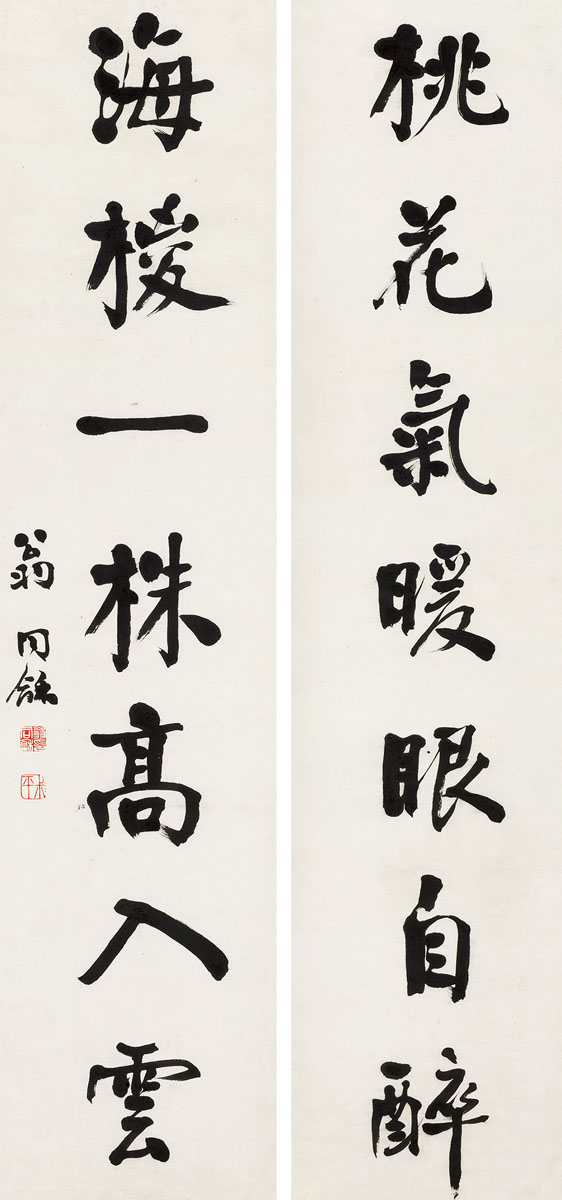 桃花氣暖眼自醉
海椶一株高入雲
翁同龢
叔平